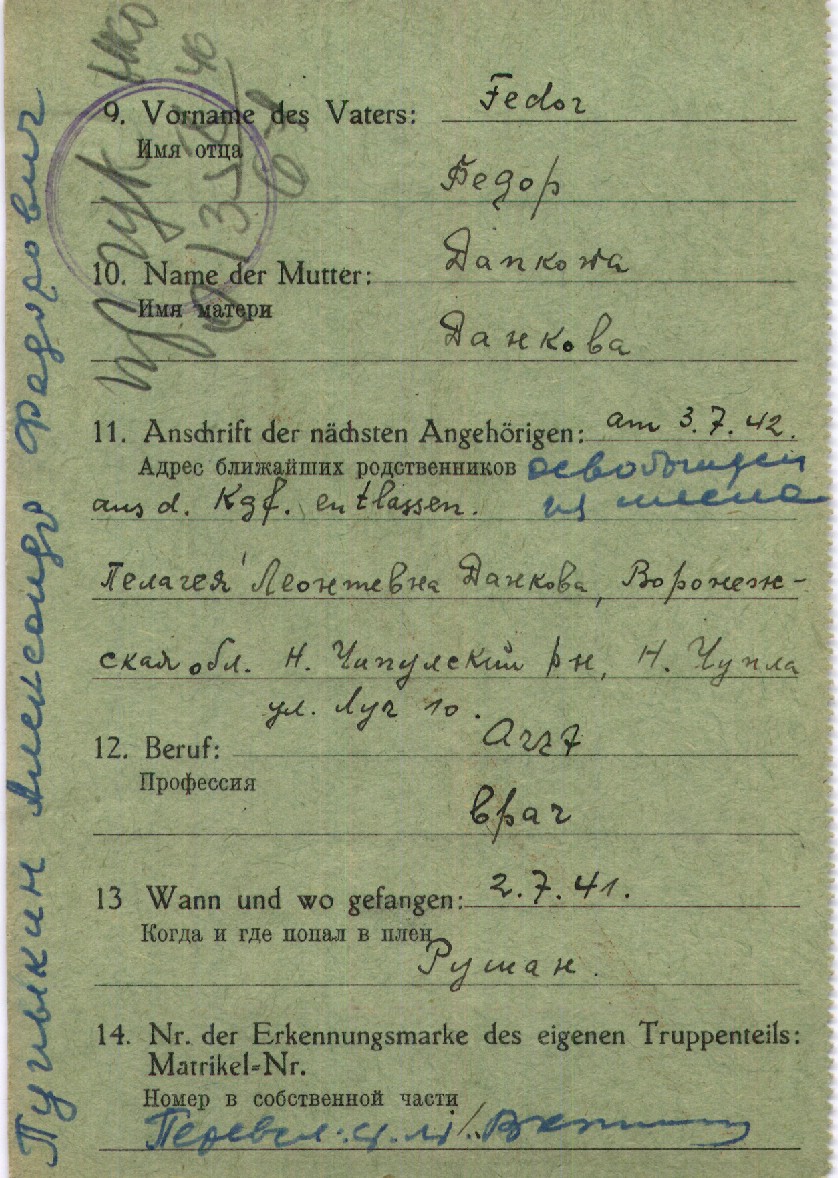 9. Vorname des Vaters: Fedor
Имя отца
Федор
10. Name der Mutter: Данкова
Имя матери
Данкова
11. Anschrift der nächsten Angehörigen: am 3.7.42.
Адрес ближайших родственников освобожден
aus d. Kgf. entlassen. из плена
Пелагея Леонтевна Данкова, Воронеж-
ская обл. Н. Чипулский рн, Н. Чупла
ул. Луч 10.
12. Beruf: Arzt
Профессия
врач
13 Wann und wo gefangen: 2.7.41.
Когда и где попал в плен
14. Nr. der Erkennungsmarke des eigenen Truppenteils:
Matrikel-Nr.
Номер в собственной части
Александр Федорович